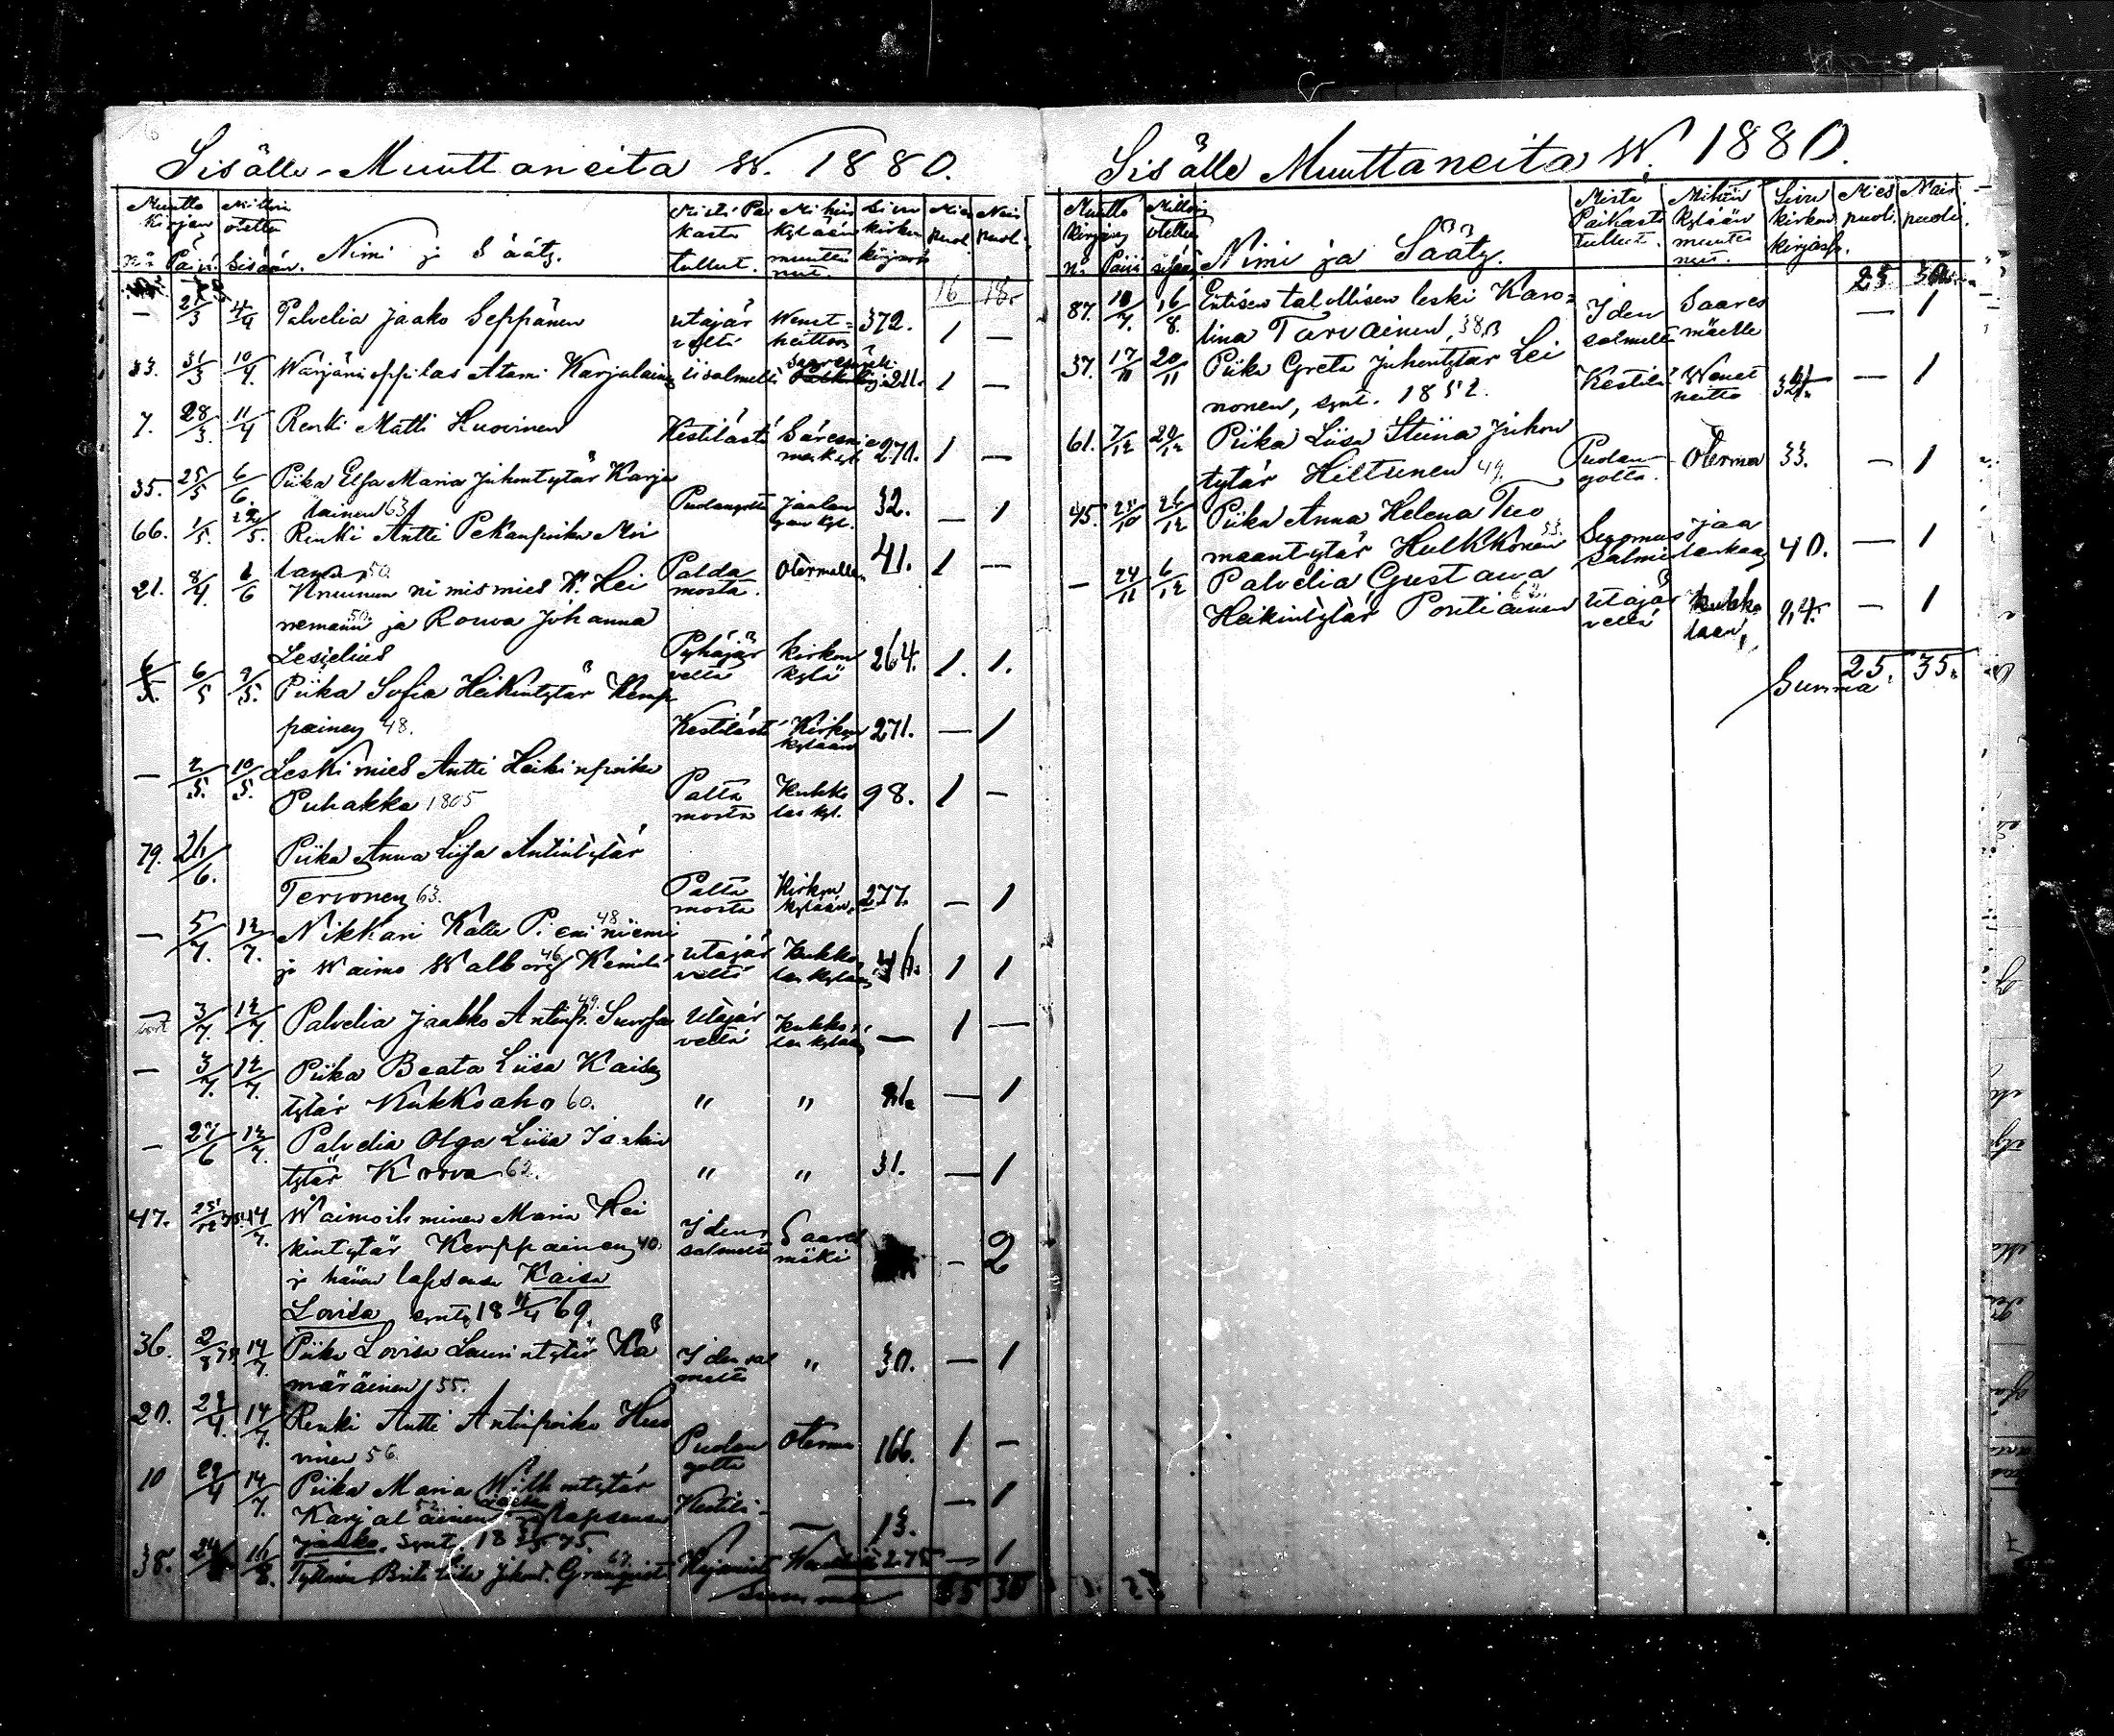 Sisälle-Muuttaneita W. 1880.
Muutto Kirjan Milloin otettu Nimi ja Sääty. Mistä Paikasta tullut. Mihin kylään muuttanut. Sivu kirkon kirjassa Mies puol. Nais puol.
No Päivä Sisään.
16 18.
— 21/3 4/4 Palvelia Jaako Seppänen Utajärveltä Wenetheittoon 372. 1 —
33. 31/3 10/4. Wärjäri oppilas Atami Karjalainen Iisalmelta 211. 1 —
7. 28/3. 11/4 Renki Matti Huovinen Kestilästä 270. 1 —
35. 25/5 6/6. Piika Elsa Maria Juhontytär Karja
lainen 63 Pudangolta Jaalangan kyl. 32. — 1
66. 1/5. 22/5. Renki Antti Pekanpoika
50. Paldamosta. Otermalle 41. 1 —
21. 8/4. 6/6 Kruunun nimismies K. Hei
nemann 50. ja Rouva Johanna
Lesielius Pyhäjärveltä Kirkon kylä 264. 1. 1.
6/5 2/5. Piika Sofia Heikintytär Kemp
painen 48. Kestilästä Kirkon kylään 271. — 1
— 2/5. 10/5. Leskimies Antti Heikinpoika
Puhakka 1805 Paltamosta Kukkolas kyl. 98. 1 —
79. 26/6. Piika Anna Liisa Antintytär
Tervonen 63. Paltamosta Kirkon kylään. 277. — 1
— 5/7. 12/7. Nikkari Kalle Pieniniemi 48
ja Waimo Walborg 46 Kemilä Utajärveltä Kukkolan kylään 1 1
— 3/7. 12/7. Palvelia Jaakko Antinp. 49. Suorsa Utajärveltä Kukkolan kylään — 1 —
— 3/7. 12/7. Piika Beata Liisa Kaisan
tytär Kukkoaho 60. " " — 1
— 27/6 12/7. Palvelia Olga Liisa
tytär Korva 62. " " 31. — 1
47. 25/12 14/7. Waimoihminen Maria Hei
kintytär Keppainen 40. Idensalmelta Saaresmäki — 2
ja hänen lapsensa Kaisa
Lovisa synt. 18 11/4 69.
36. 2/8 14/7. Piika Lovisa Laurintytär Kä
märäinen 55. Idensalmelta " 30. — 1
20. 29/4. 14/7. Renki Antti Antinpoika Huo
vinen 56. Pudangolta Oterma 166. 1 —
10 22/4 14/7. Piika Maria
Karjalainen 52 lapsensa Kestilä — 13. — 1
Jaakko. synt. 18 75.
38. 16/8. Juhont. Granqvist Kajanista 275 — 1
Summa 25 30
Sisälle Muuttaneita W. 1880.
Muutto kirjan Milloin otettu Nimi ja Sääty. Mistä Paikasta tullut. Mihin kylään muuttanut. Sivu kirkon kirjassa. Mies puoli. Nais puoli.
No Päivä sisään
25 30
87. 10/7. 16/8. Entisen talollisen leski Karo=
lina Tarvainen, 38 Idensalmelta Saaresmäelle — 1
37. 17/11 20/11 Piika Greta Juhontytär Lei
nonen, synt. 1852. Kestilä Wenetheitto — 1
61. 7/12 20/12 Piika Liisa Stiina Juhon
tytär Hiltunen 49. Pudangolta. Oterma 33. — 1
45. 25/10 26/12 Piika Anna Helena Tuo
maantytär Hulkkonen 53. Suomussalmi Jaalankaan 40. — 1
— 24/11 6/12 Palvelia Gustawa
Heikintytär Pontiainen 62. Utajärveltä Kukkolaan, 94. — 1
Summa 25. 35.